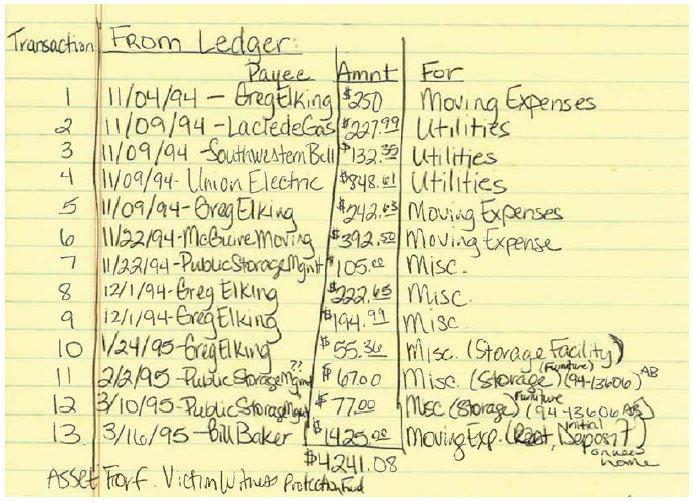 Transaction From Ledger:
Payee Amnt For
1 11/04/94 - Greg Elking $250 Moving Expenses
2 11/09/94 - Laclede Gas $227.99 Utilities
3 11/09/94 - Southwestern Bell $132.35 Utilities
4 11/09/94 - Union Electric $848.61 Utilities
5 11/09/94 - Greg Elking $242.63 Moving Expenses
6 11/22/94 - McGuire Moving $392.50 Moving Expense
7 11/22/94 - Public Storage Mgmt $105.00 Misc.
8 12/1/94 - Greg Elking $222.65 Misc.
9 12/1/94 - Greg Elking $194.99 Misc.
10 1/24/95 - Greg Elking $55.36 Misc. (Storage Facility)
11 2/2/95 - Public Storage Mgmt ?? $67.00 Misc. (Storage) (Furniture) (94-13606) AB
12 3/10/95 - Public Storage Mgmt $77.00 Misc (Storage) Furniture (94-13606 AB)
13. 3/16/95 - Bill Baker $1425.00 Moving Exp. (Rent, Initial Deposit) on new home
$4241.08
Asset Forf. Victim Witness Protection Fund